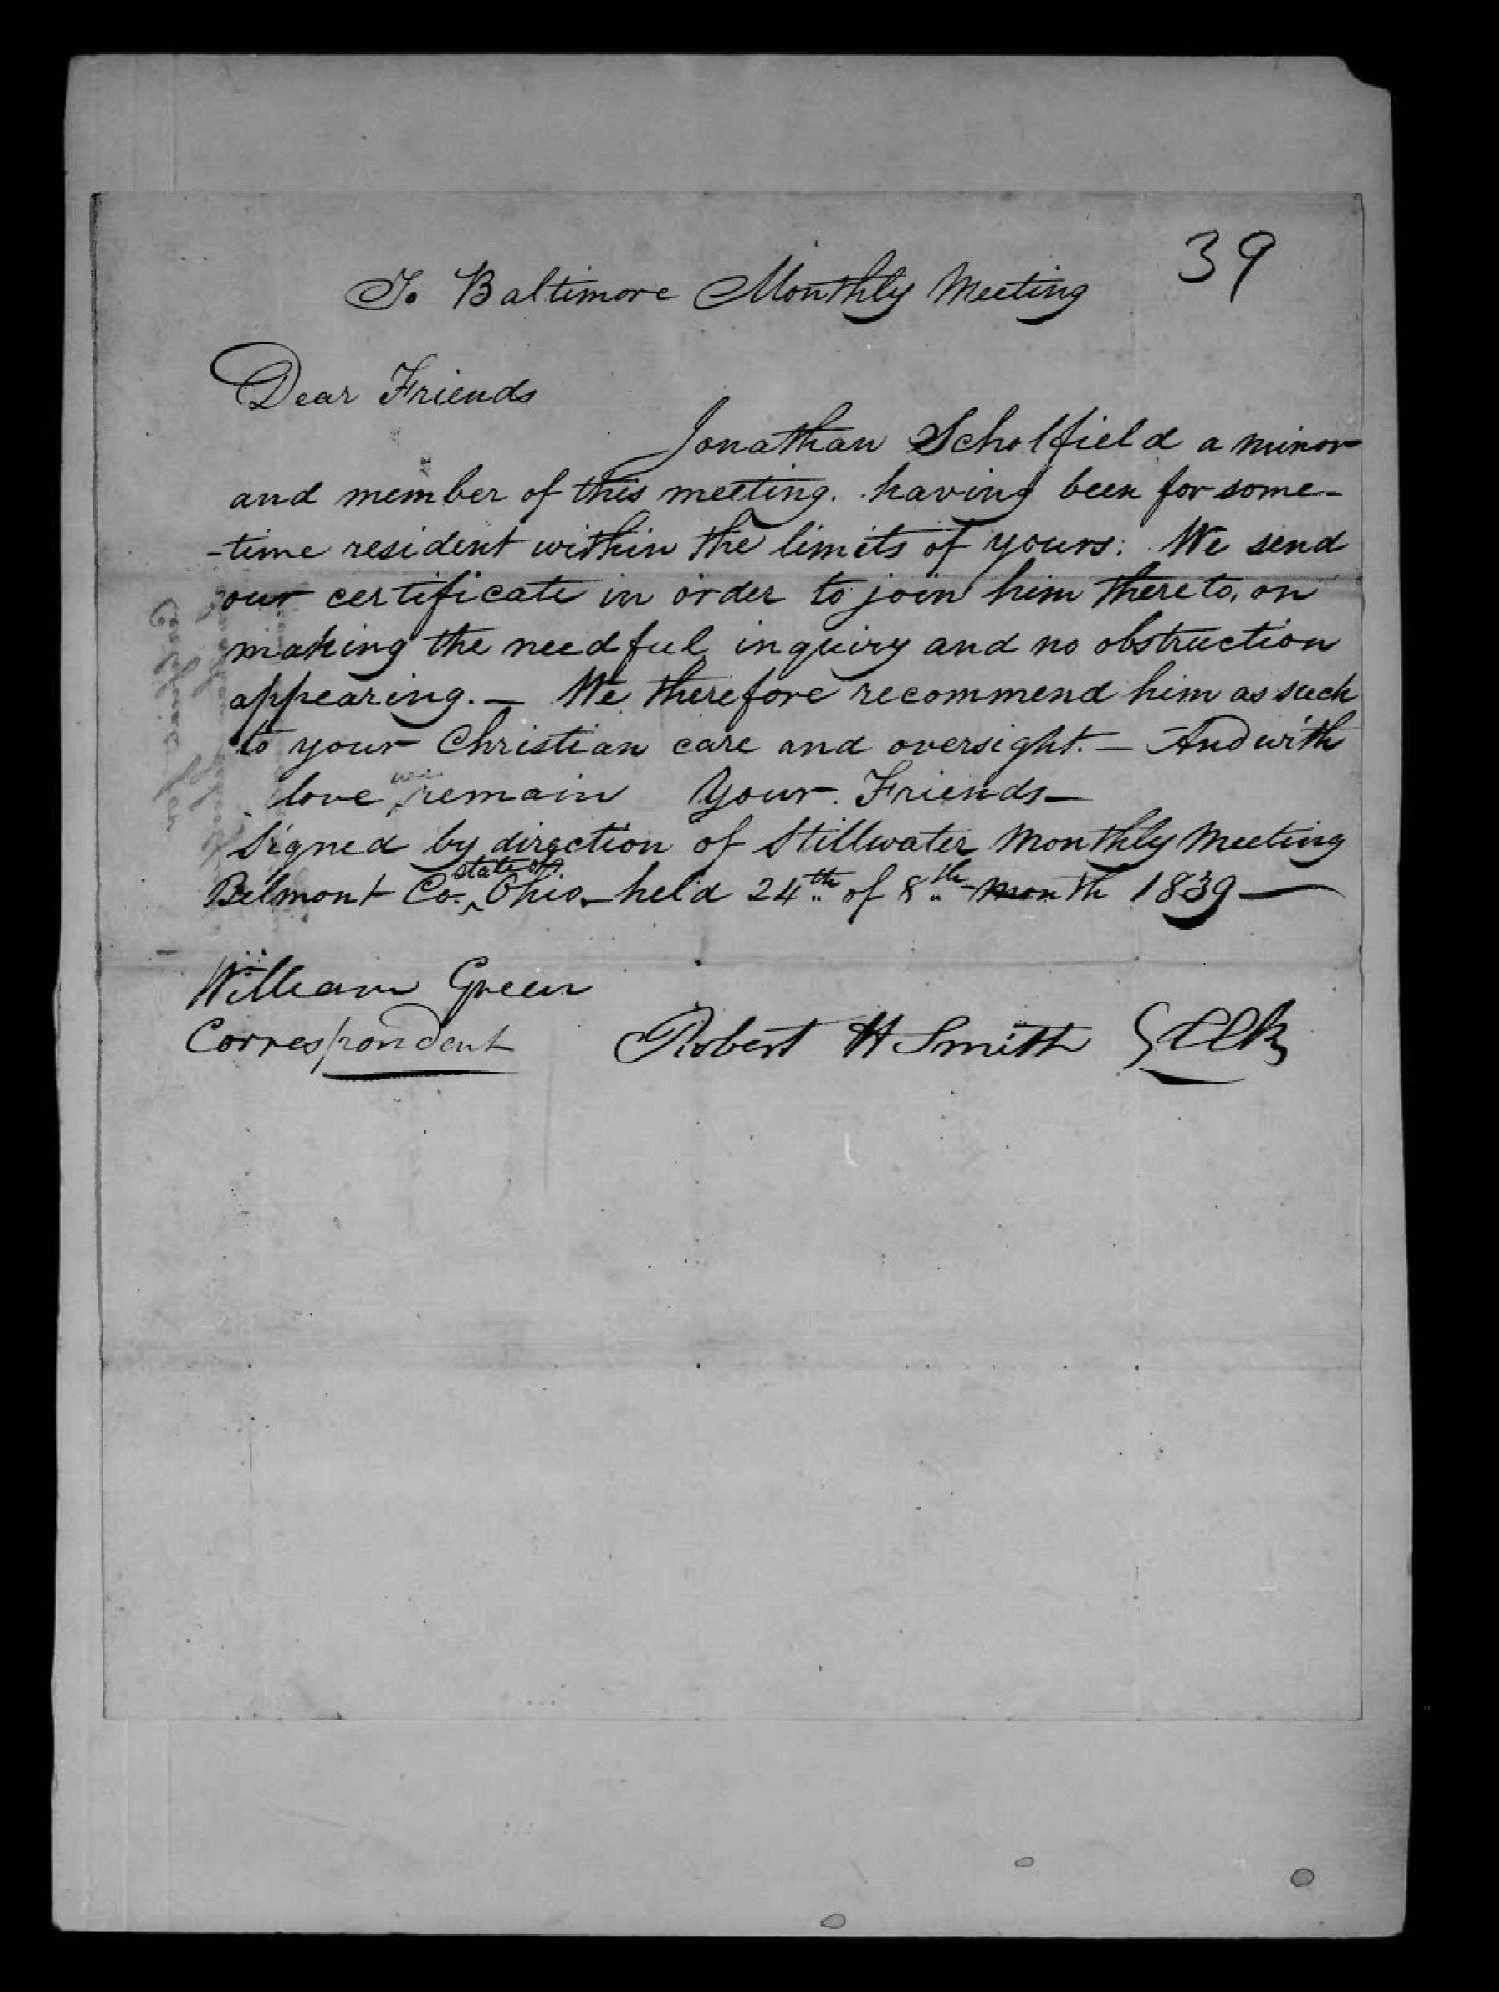 39
To Baltimore Monthly Meeting
Dear Friends
Jonathan Scholfield a minor
and member of this meeting. having been for some-
-time resident within the limits of yours: We send
our certificate in order to join him thereto, on
making the needful inquiry and no obstruction
appearing. — We therefore recommend him as such
to your Christian care and oversight. — And with
love we remain Your Friends —
Signed by direction of Stillwater Monthly Meeting
Belmont Co. state of Ohio, held 24th of 8th month 1839 —
William Green
Correspondent
Robert H Smith Clk